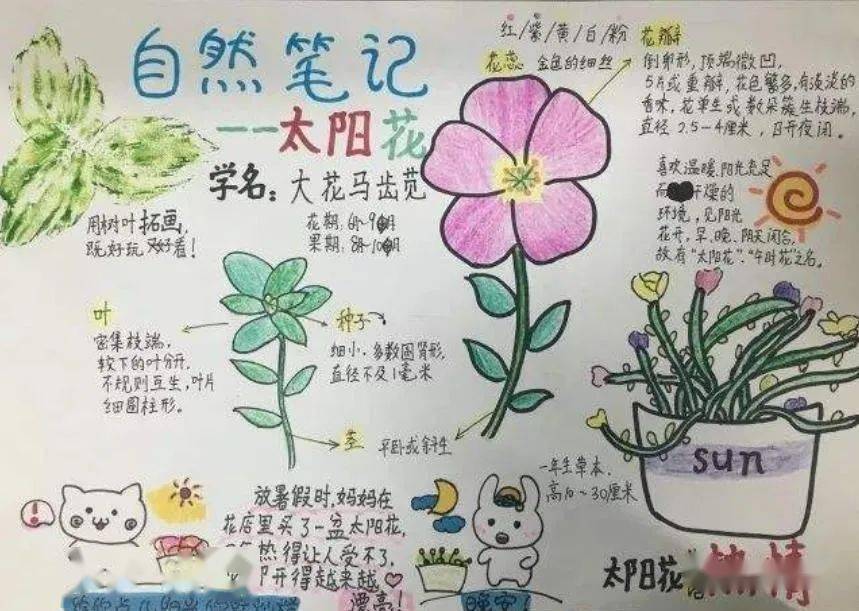 自然笔记
——太阳花
学名：大花马齿苋
红/紫/黄/白/粉
花蕊 金色的细丝
花瓣
倒卵形，顶端微凹，
5片或重瓣，花色繁多，有淡淡的
香味，花单生或数朵簇生枝端，
直径 2.5-4厘米，日开夜闭。
用树叶拓画，
既好玩又好看！
花期：6月-9月
果期：8月-10月
喜欢温暖、阳光充足
而干燥的
环境，见阳光
花开，早、晚、阴天闭合，
故有"太阳花"、"午时花"之名。
叶
密集枝端，
较下的叶分开，
不规则互生，叶片
细圆柱形。
种子
细小，多数圆肾形，
直径不及1毫米
茎 平卧或斜生
一年生草本，
高10～30厘米
sun
放暑假时，妈妈在
花店里买了一盆太阳花，
热得让人受不了，
开得越来越
漂亮！
晚安！
太阳花 热情